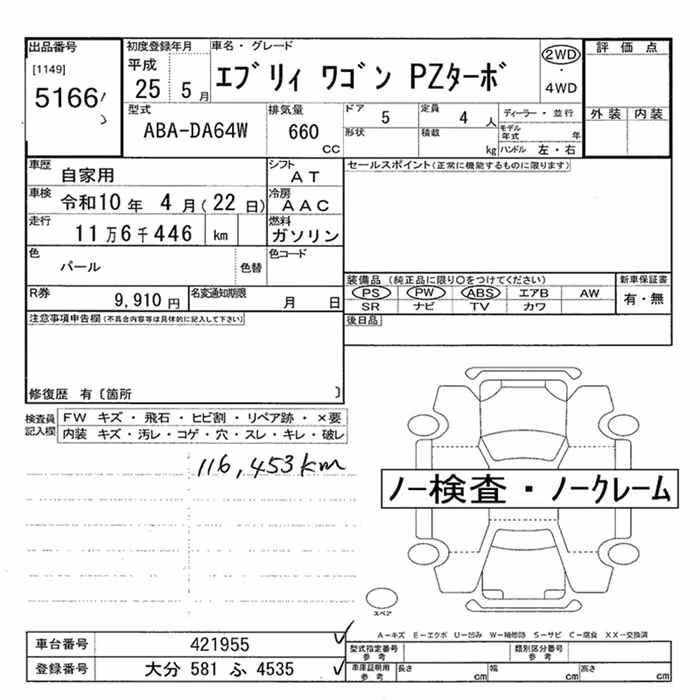 出品番号
[1149]
5166
初度登録年月
平成
25 5月
車名・グレード
エブリィ ワゴン PZターボ
2WD
・
4WD
評価点
外装 内装
型式
ABA-DA64W
排気量
660
CC
ドア
5
定員
4 人
形状
積載
kg
ディーラー・並行
モデル
年式 年
ハンドル 左・右
車歴
自家用
シフト
AT
車検
令和10年 4月(22日)
冷房
AAC
走行
11万6千446 km
燃料
ガソリン
色
パール
色替
色コード
R券
9,910円
名変通知期限
月 日
セールスポイント(正常に機能するものに限ります)
装備品 (純正品に限り○をつけてください)
PS PW ABS エアB AW
SR ナビ TV カワ
新車保証書
有・無
後日品
注意事項申告欄(不具合内容等は具体的に記入して下さい)
修復歴 有〔箇所 〕
検査員
記入欄
FW キズ・飛石・ヒビ割・リペア跡・×要
内装 キズ・汚レ・コゲ・穴・スレ・キレ・破レ
116,453km
ノー検査・ノークレーム
スペア
A-キズ E-エクボ U-凹み W-補修跡 S-サビ C-腐食 XX-交換済
車台番号
421955
登録番号
大分 581 ふ 4535
型式指定番号
参考
類別区分番号
参考
車庫証明用
参考
長さ cm
幅 cm
高さ cm